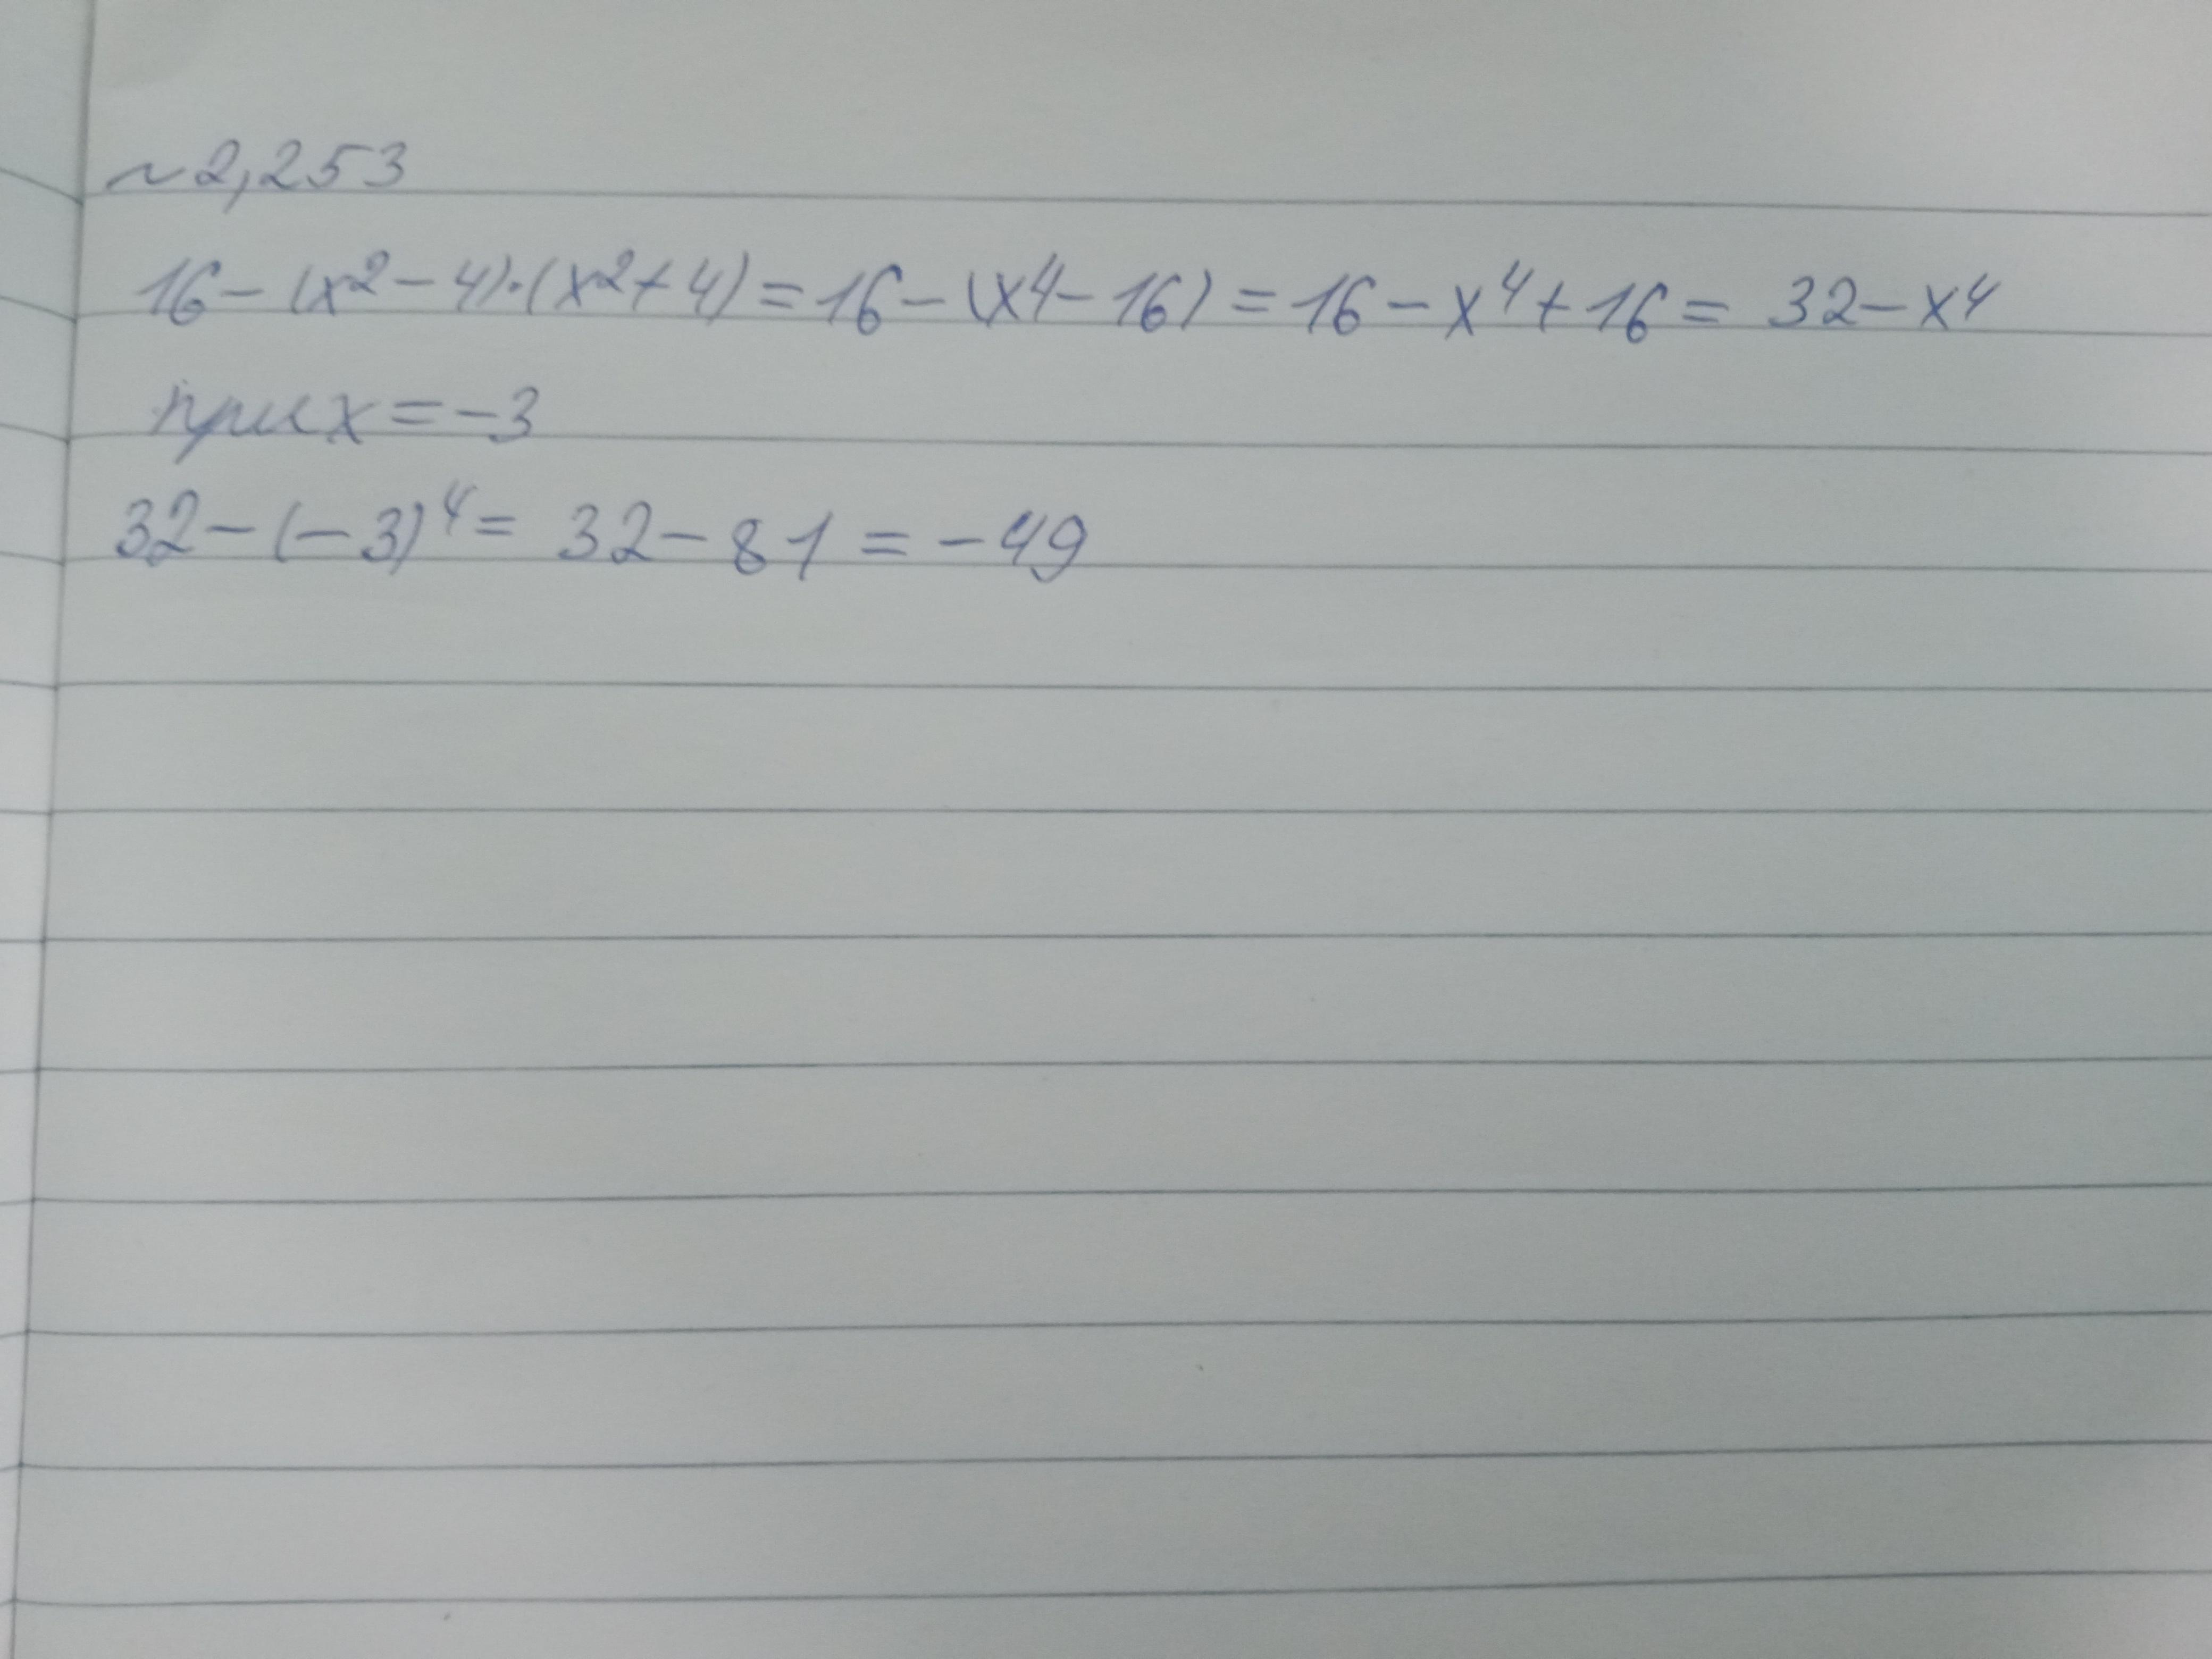 ~2,253
16-(x²-4)·(x²+4)=16-(x⁴-16)=16-x⁴+16= 32-x⁴
при x=-3
32-(-3)⁴= 32-81=-49